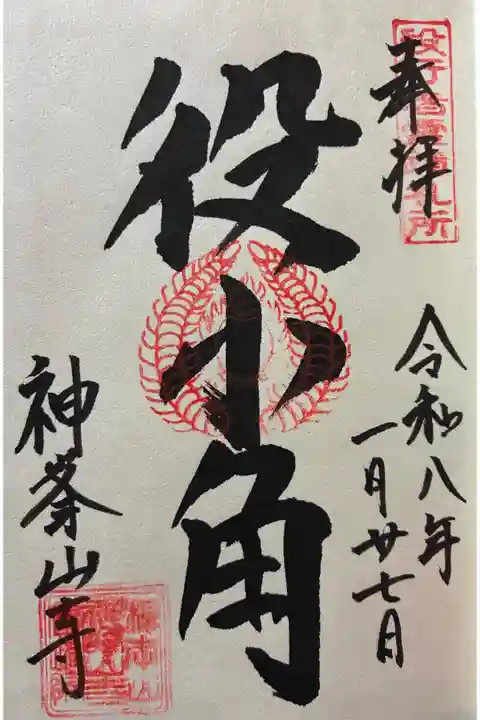 役行者霊蹟札所
奉拝
令和八年
一月廿七日
役小角
神峯山寺